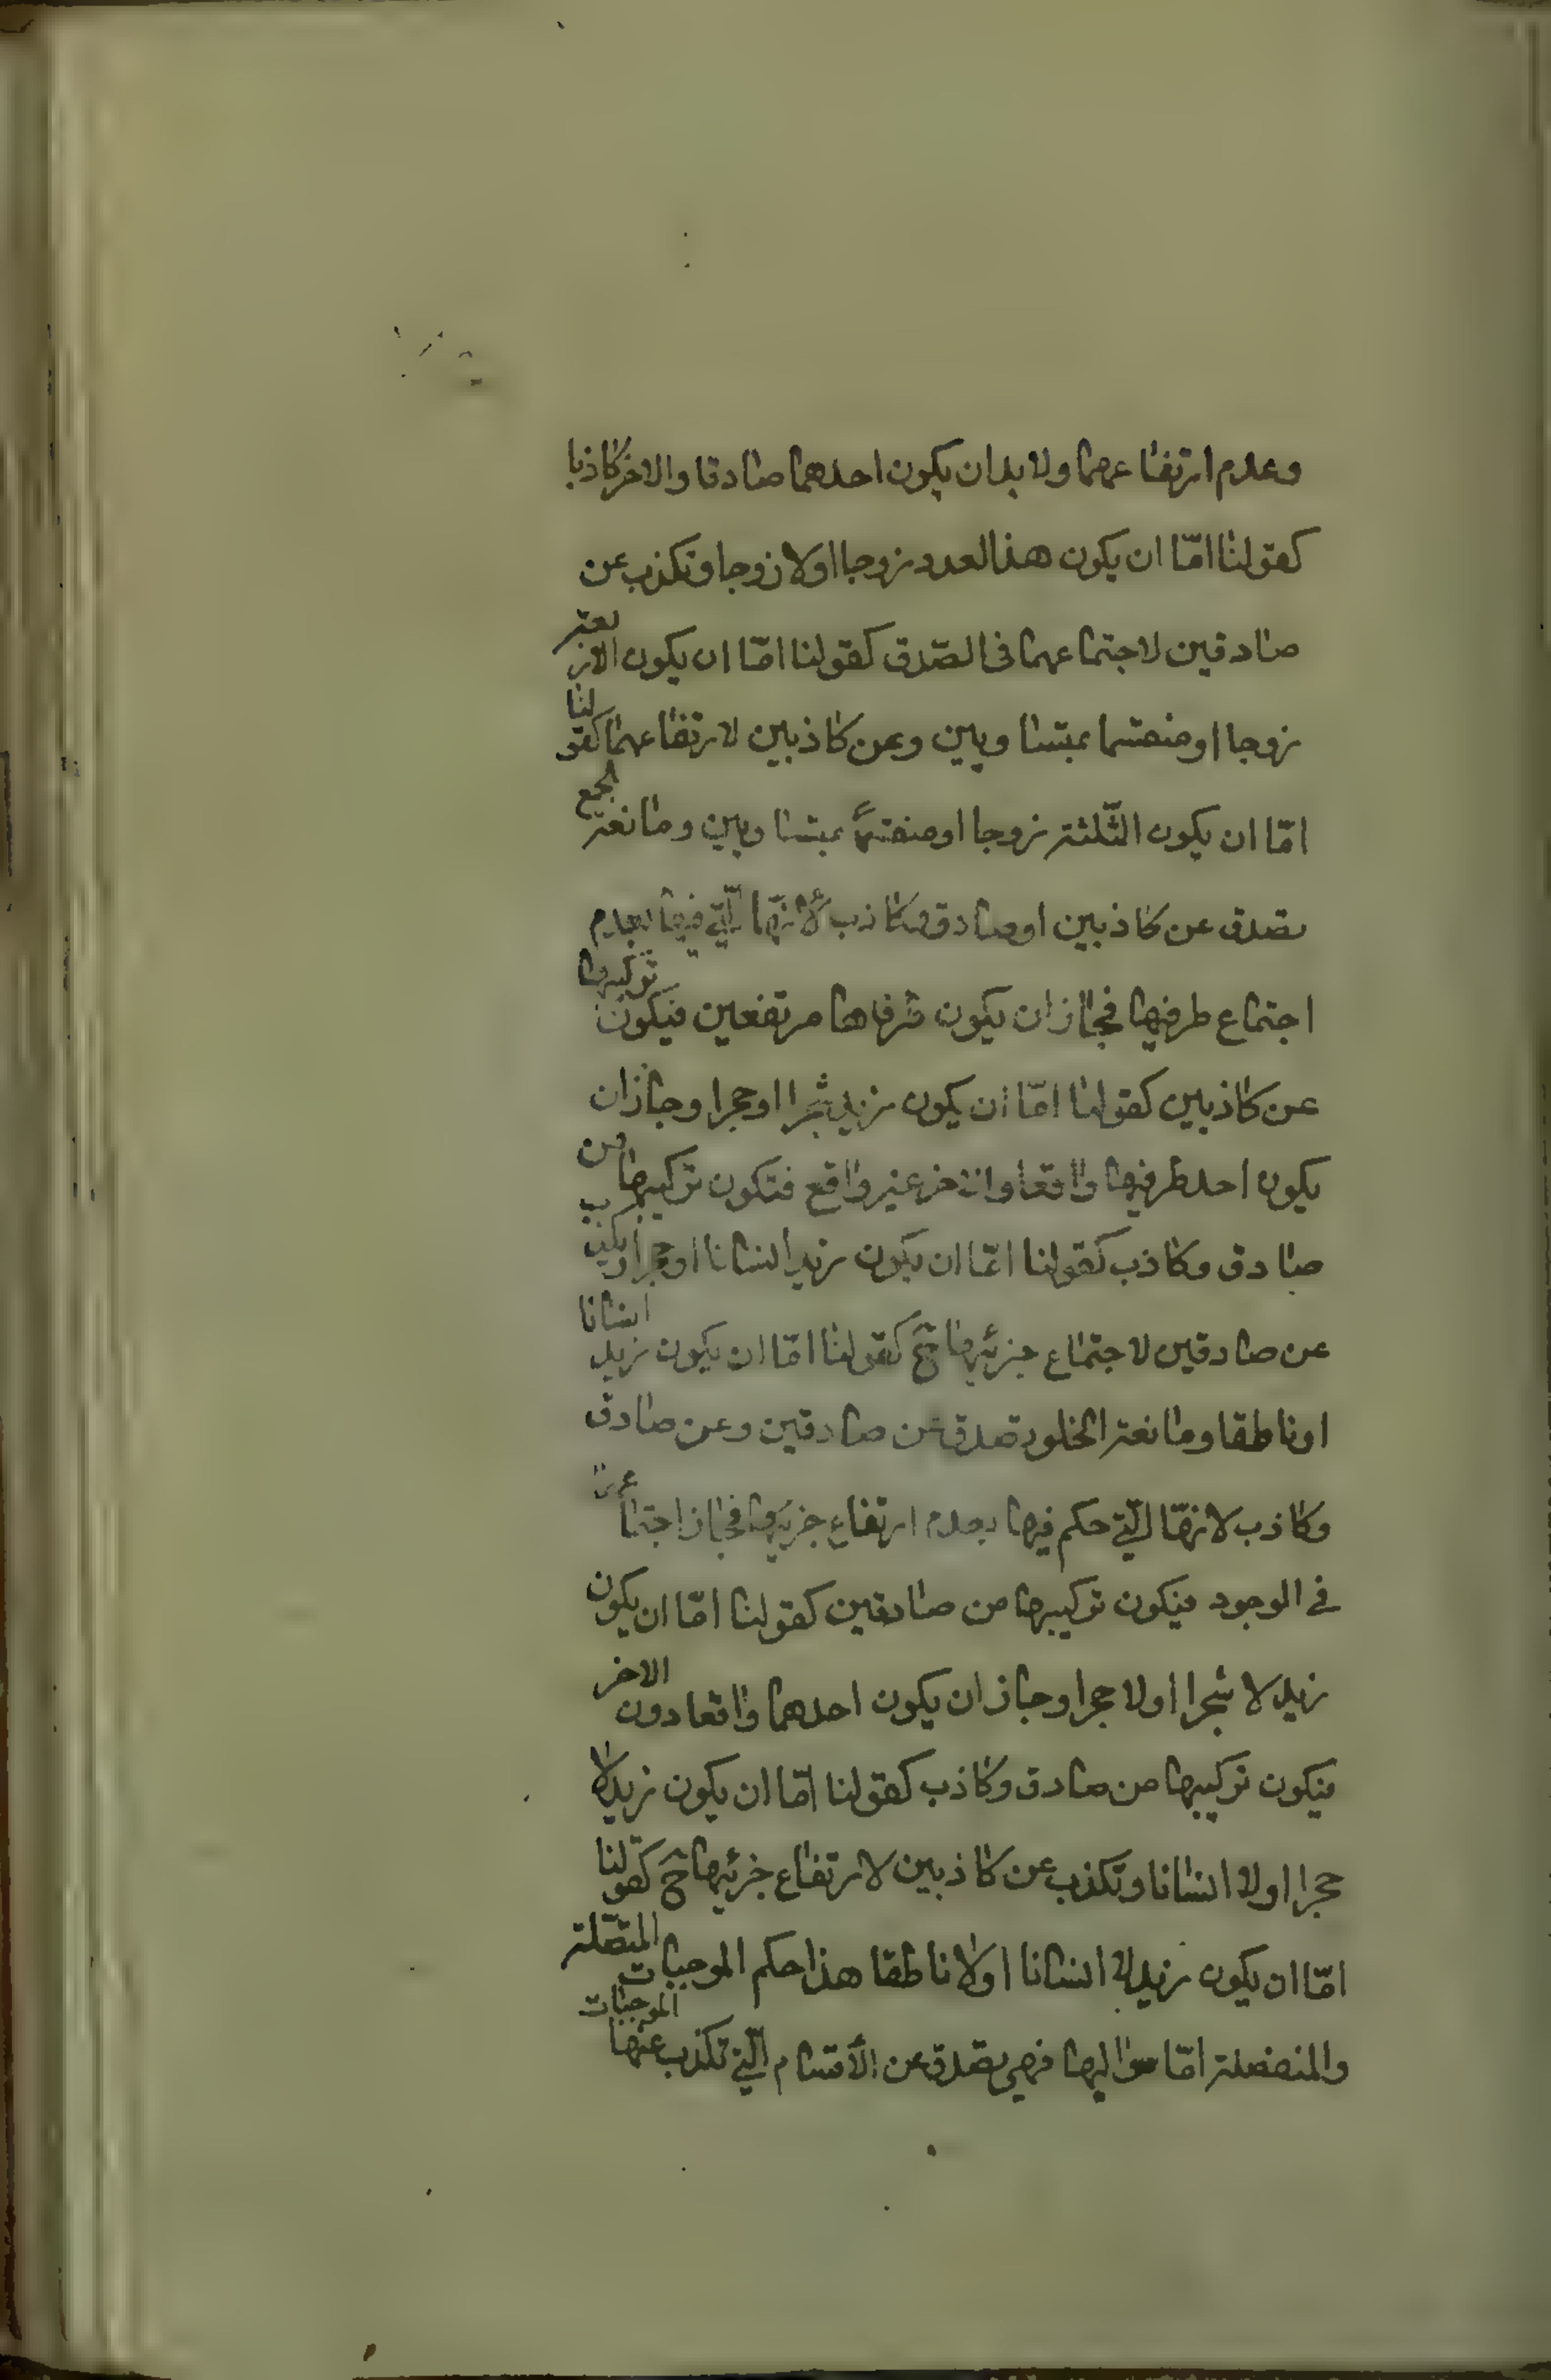 وعدم ارتفاعهما ولا بد ان يكون احدهما صادقا والاخر كاذبا
كقولنا امّا ان يكون هذا العدد زوجا اولا زوجا وتكذب عن
صادقين لاجتماعهما فى الصّدق كقولنا امّا ان يكون الاربعة
زوجا او منقسما بمتساويين وعن كاذبين لارتفاعهما كقولنا
امّا ان يكون الثّلثة زوجا او منقسمًا بمتساويين ومانعة الجمع
تصدق عن كاذبين او صادق وكاذب لأنهّا الّتي فيها بعدم
اجتماع طرفيها فجاز ان يكون طرفاها مرتفعين فيكون تركيبها
عن كاذبين كقولنا امّا ان يكون زيد شجرا او حجرا وجاز ان
يكون احد طرفيها واقعا والاخر غير واقع فتكون تركيبها من
صادق وكاذب كقولنا امّا ان يكون زيد انسانا او حجرا ويكذب
عن صادقين لاجتماع جزئيها ح كقولنا امّا ان يكون زيد انسانا
او ناطقا ومانعة الخلو تصدق عن صادقين وعن صادق
وكاذب لانهّا الّتي حكم فيها بعدم ارتفاع جزئيها فجاز اجتماعهما
في الوجود فيكون تركيبها من صادقين كقولنا امّا ان يكون
زيد لا شجرا اولا حجرا وجاز ان يكون احدهما واقعا دون الاخر
فيكون تركيبها من صادق وكاذب كقولنا امّا ان يكون زيد لا
حجرا اولا انسانا وتكذب عن كاذبين لارتفاع جزئيها ح كقولنا
امّا ان يكون زيد لا انسانا اولا ناطقا هذا حكم الموجبات المتصّلة
والمنفصلة امّا سوالبها فهي تصدق عن الأقسام الّتي تكذب عنها الموجبات